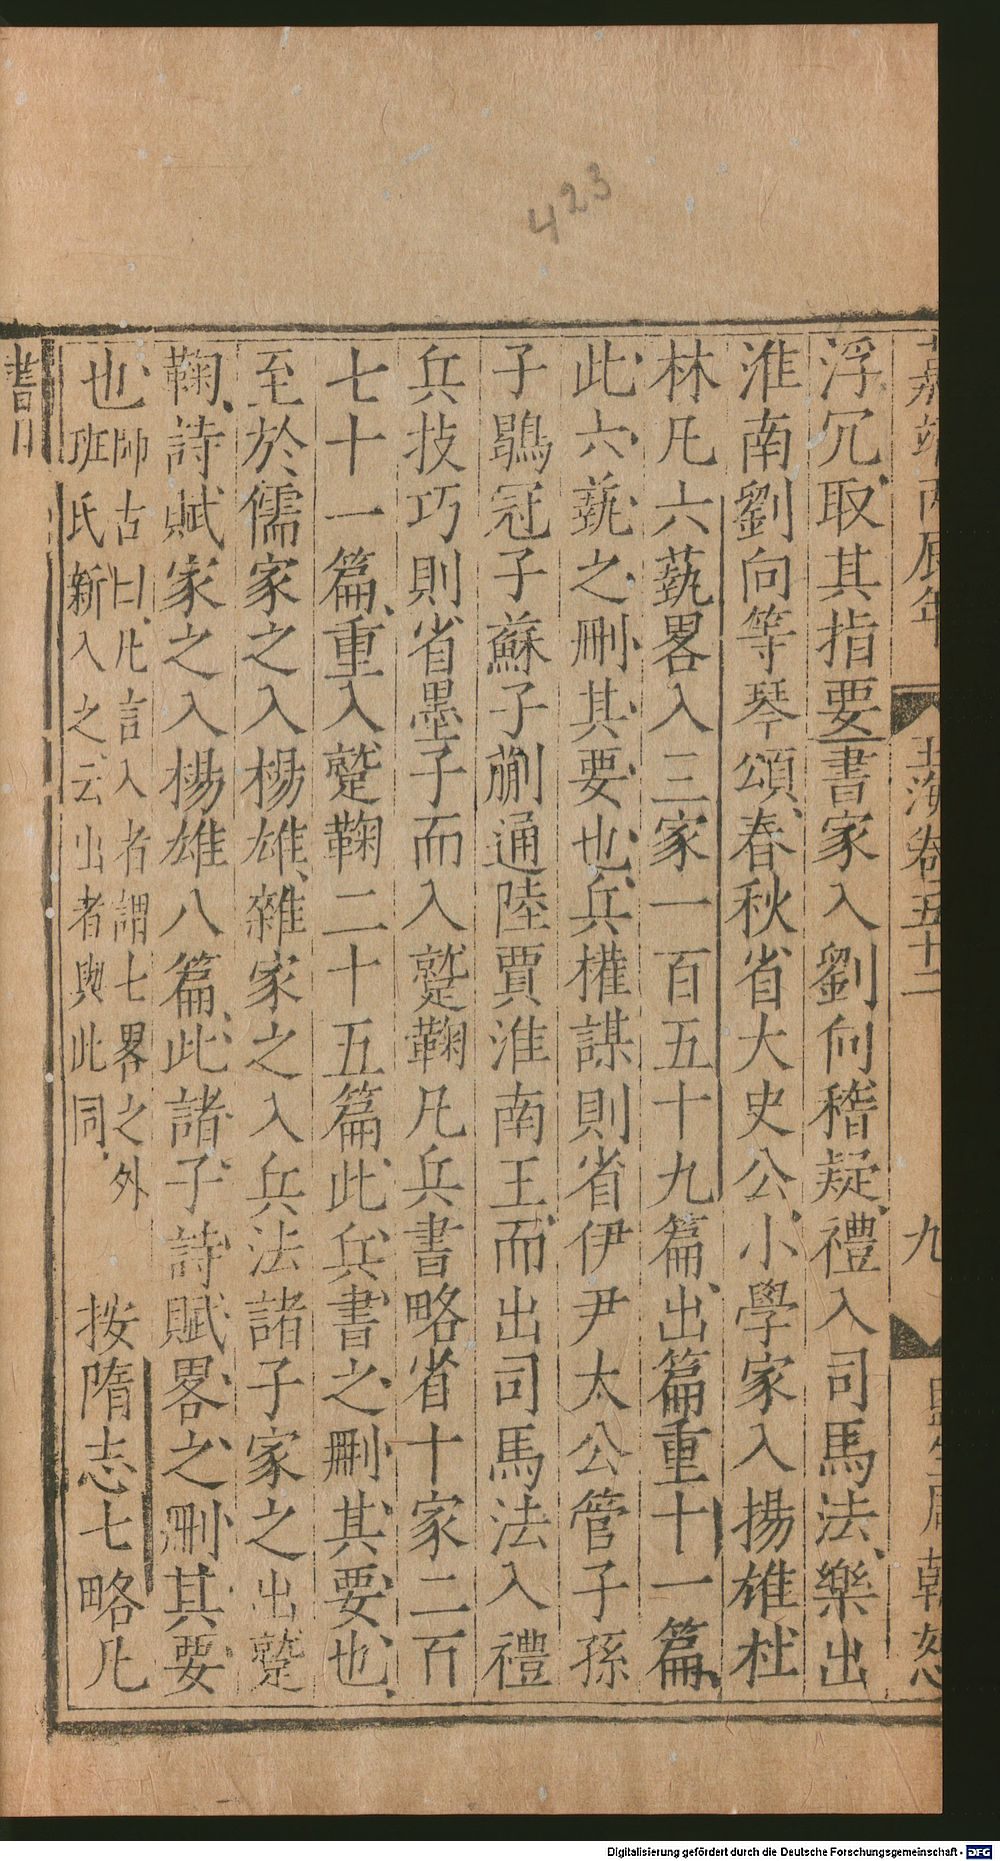 423
嘉靖丙辰年
玉海卷五十二
九
監生周朝恕
浮冗取其指要書家入劉向稽疑禮入司馬法樂出
淮南劉向等琴頌春秋省大史公小學家入揚雄杜
林凡六蓺畧入三家一百五十九篇出篇重十一篇
此六蓺之刪其要也兵權謀則省伊尹太公管子孫
子鶡冠子蘇子蒯通陸賈淮南王而出司馬法入禮
兵技巧則省墨子而入蹵鞠凡兵書略省十家二百
七十一篇重入蹵鞠二十五篇此兵書之刪其要也
至於儒家之入楊雄雜家之入兵法諸子家之出蹵
鞠詩賦家之入楊雄八篇此諸子詩賦畧之刪其要
也師古曰凡言入者謂七畧之外
班氏新入之云出者與此同
按隋志七略凡
書目
Digitalisierung gefördert durch die Deutsche Forschungsgemeinschaft - DFG